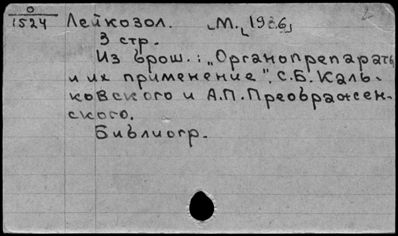 0
1524 Лейкозол. [М.], [1936]
3 стр.
Из брош.: „Органопрепараты
и их применение". С.Б. Каль-
ковского и А.П. Преображен-
ского.
Библиогр.